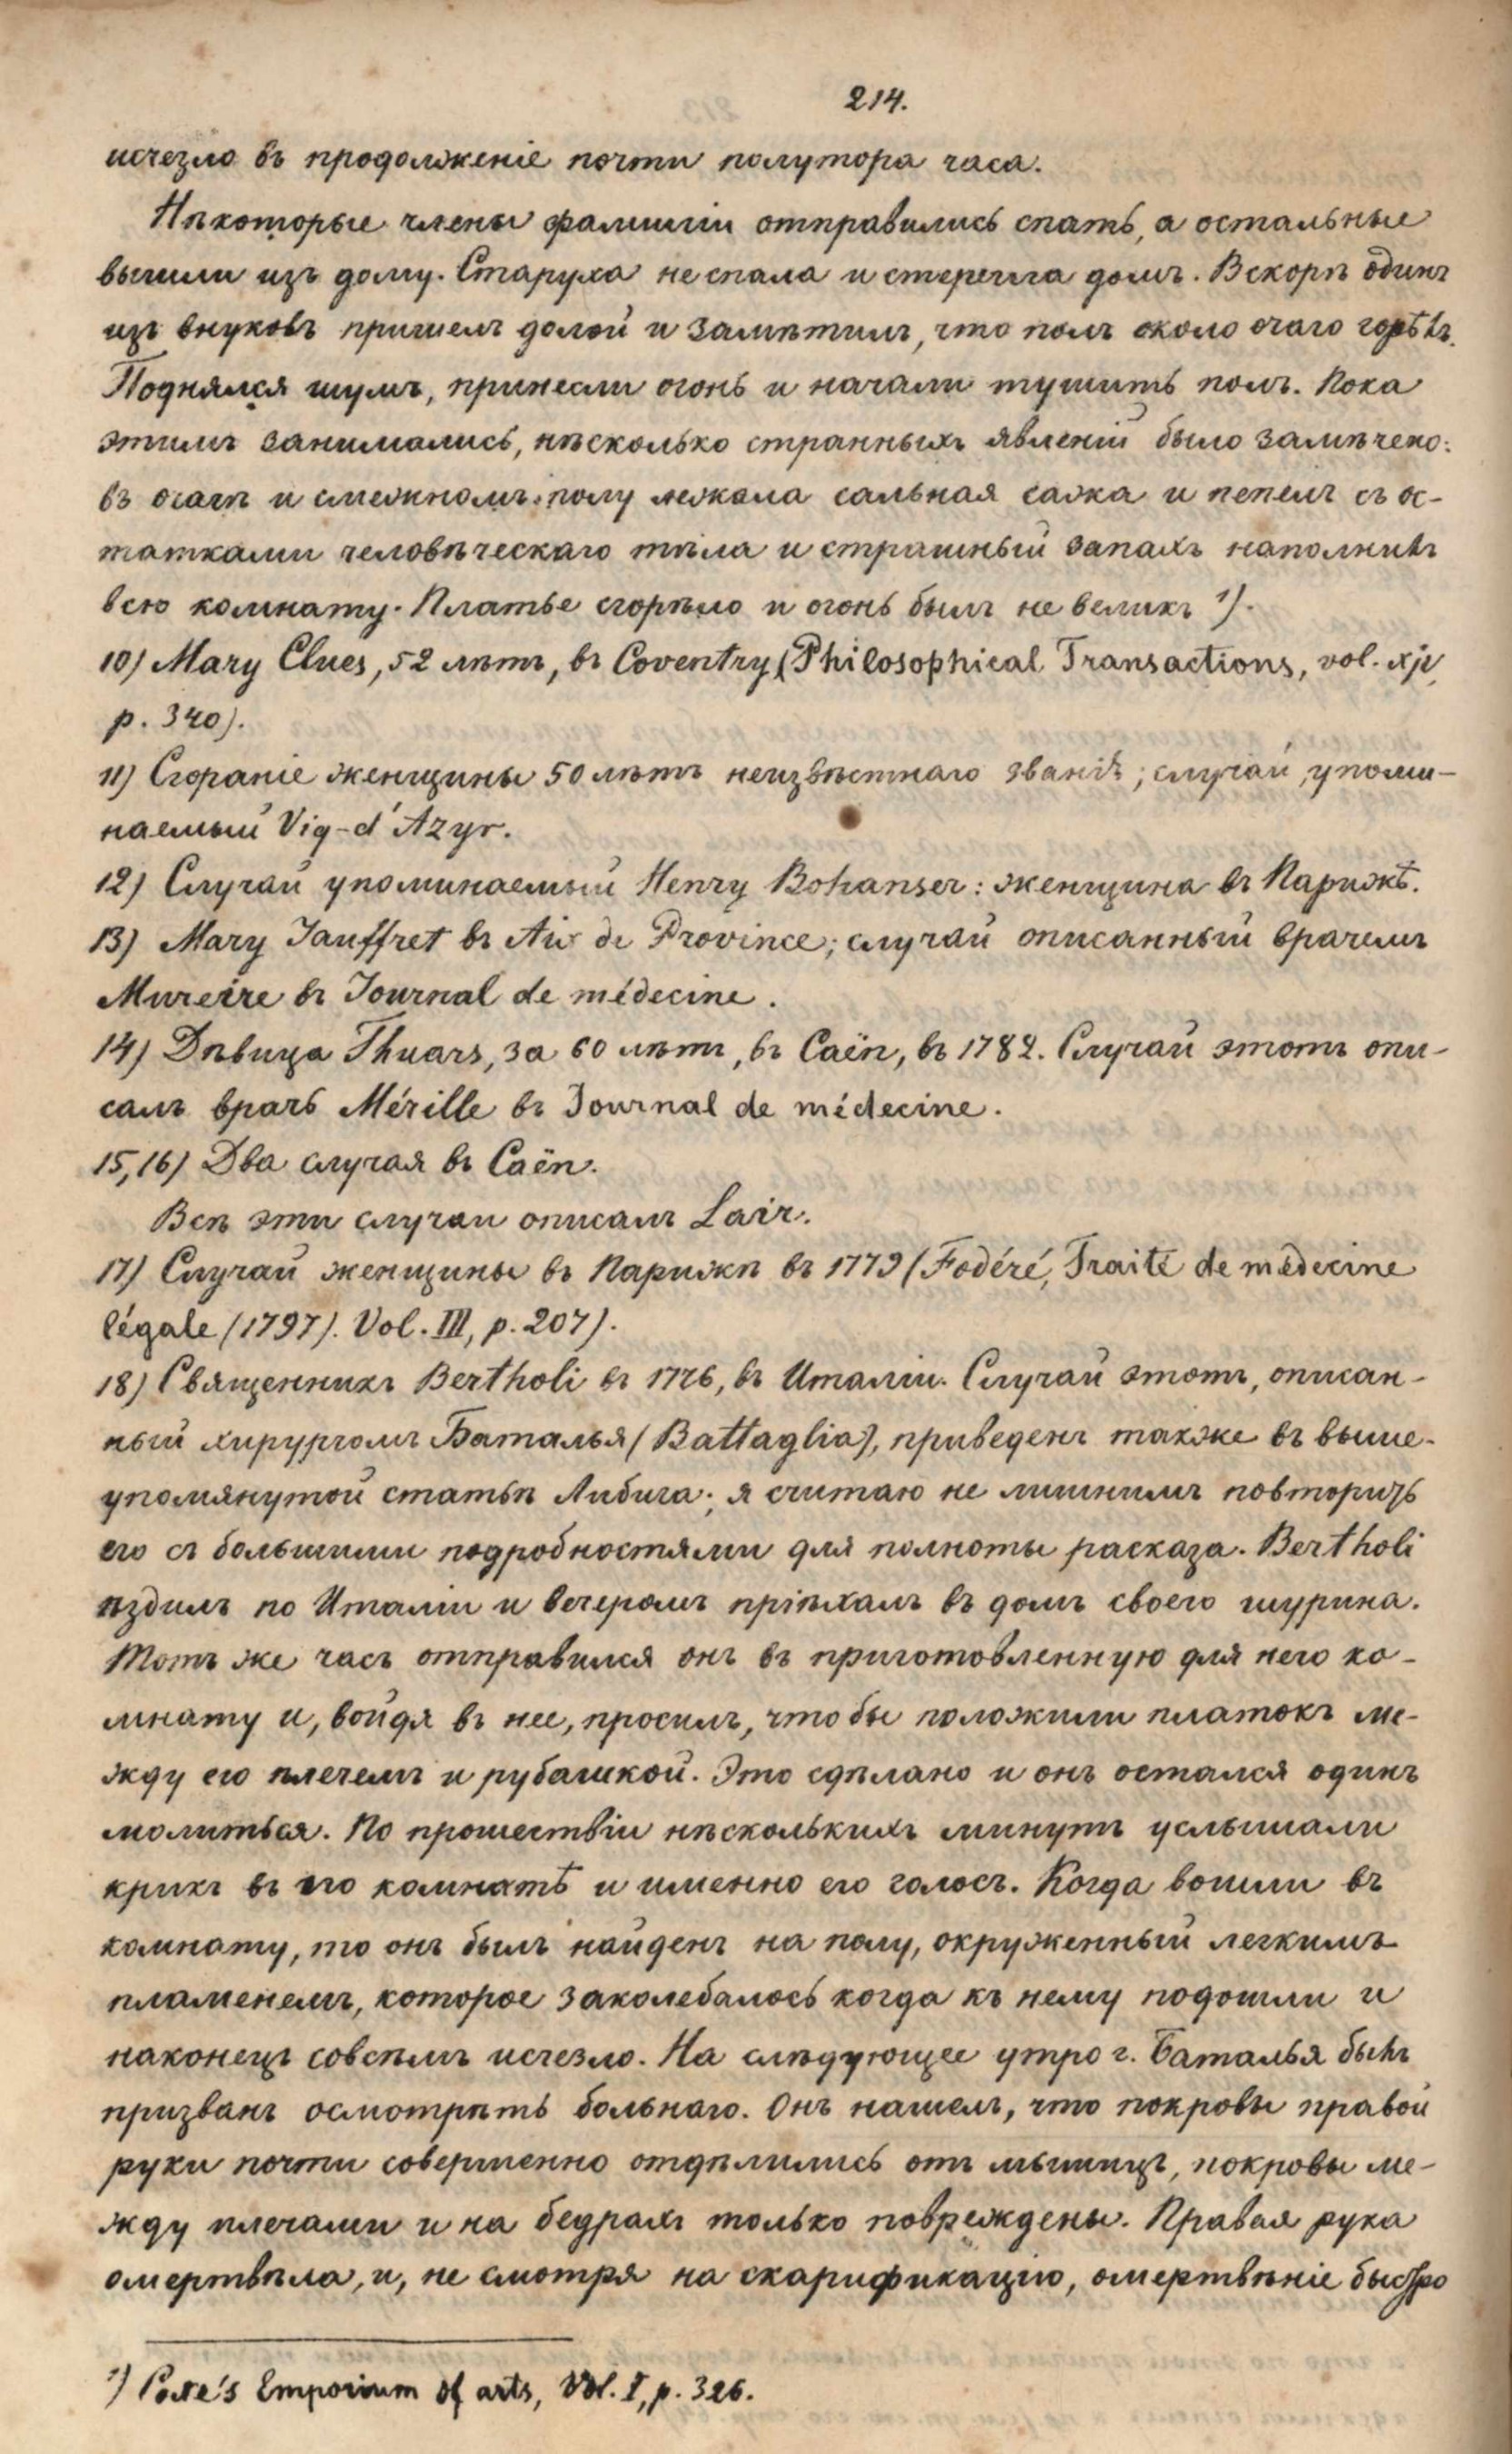 214.
исчезло въ продолженіе почти полутора часа.
Нѣкоторые члены фамиліи отправились спать, а остальные
вышли изъ дому. Старуха не спала и стерегла домъ. Вскорѣ одинъ
изъ внуковъ пришелъ домой и замѣтилъ, что полъ около очаго горѣлъ.
Поднялся шумъ, принесли огонь и начали тушить полъ. Пока
этимъ занимались, нѣсколько странныхъ явленій было замѣчено:
въ очагѣ и смежномъ полу лежала сальная сажа и пепелъ съ ос-
татками человѣческаго тѣла и страшный запахъ наполнилъ
всю комнату. Платье сгорѣло и огонь былъ не великъ ¹).
10) Mary Clues, 52 лѣтъ, въ Coventry (Philosophical Transactions, vol. xjv,
p. 340).
11) Сгораніе женщины 50 лѣтъ неизвѣстнаго званія; случай, упоми-
наемый Viq-d'Azyr.
12) Случай упоминаемый Henry Bohanser: женщина въ Парижѣ.
13) Mary Jauffret въ Aix de Province; случай описанный врачемъ
Mureire въ Journal de médecine.
14) Дѣвица Thuars, за 60 лѣтъ, въ Caën, въ 1782. Случай этотъ опи-
салъ врачъ Mérille въ Journal de médecine.
15,16) Два случая въ Caën.
Всѣ эти случаи описалъ Lair.
17) Случай женщины въ Парижѣ въ 1779 (Fodéré, Traité de médecine
légale (1797). Vol. III, p. 207).
18) Священникъ Bertholi въ 1776, въ Италіи. Случай этотъ, описан-
ный хирургомъ Баталья (Battaglia), приведенъ также въ выше-
упомянутой статьѣ Либига; я считаю не лишнимъ повторить
его съ большими подробностями для полноты расказа. Bertholi
ѣздилъ по Италіи и вечеромъ пріѣхалъ въ домъ своего шурина.
Тотъ же часъ отправился онъ въ приготовленную для него ко-
мнату и, войдя въ нее, просилъ, что бы положили платокъ ме-
жду его плечемъ и рубашкой. Это сдѣлано и онъ остался одинъ
молиться. По прошествіи нѣсколькихъ минутъ услышали
крикъ въ его комнатѣ и именно его голосъ. Когда вошли въ
комнату, то онъ былъ найденъ на полу, окруженный легкимъ
пламенемъ, которое заколебалось когда къ нему подошли и
наконецъ совсѣмъ исчезло. На слѣдующее утро г. Баталья былъ
призванъ осмотрѣть больнаго. Онъ нашелъ, что покровы правой
руки почти совершенно отдѣлились отъ мышицъ, покровы ме-
жду плечами и на бедрахъ только повреждены. Правая рука
омертвѣла, и, не смотря на скарификацію, омертвѣніе быстро
¹) Coxe's Emporium of arts, Vol. I, p. 326.